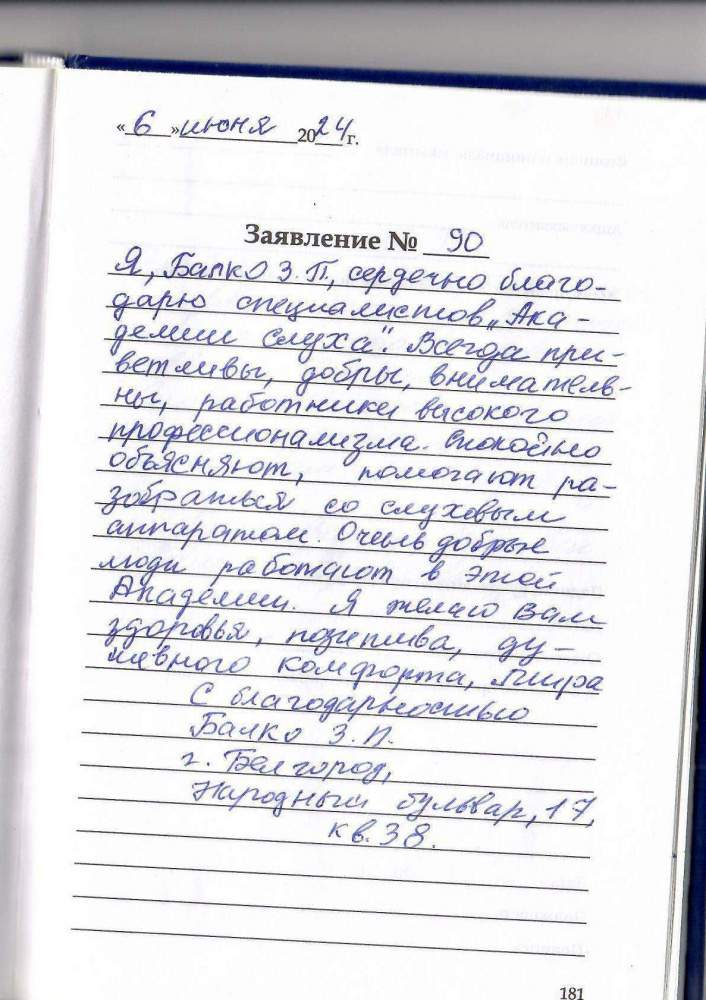 «6» июня 2024 г.
Заявление № 90
Я, Балко З. П., сердечно благо-
дарю специалистов „Ака-
демии слуха". Всегда при-
ветливы, добры, вниматель-
ны, работники высокого
профессионализма. Спокойно
объясняют, помогают ра-
зобраться со слуховым
аппаратом. Очень добрые
люди работают в этой
Академии. Я желаю Вам
здоровья, позитива, ду-
шевного комфорта, мира
С благодарностью
Балко З. П.
г. Белгород,
Народный бульвар, 17,
кв. 38.
181